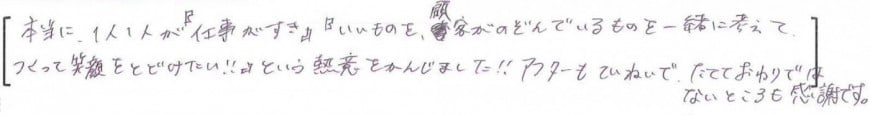 本当に、1人1人が『仕事がすき』『いいものを、顧客がのぞんでいるものを一緒に考えて、
つくって笑顔をとどけたい!!』という熱意をかんじました!! アフターもていねいで、たてておわりでは
ないところも感謝です。